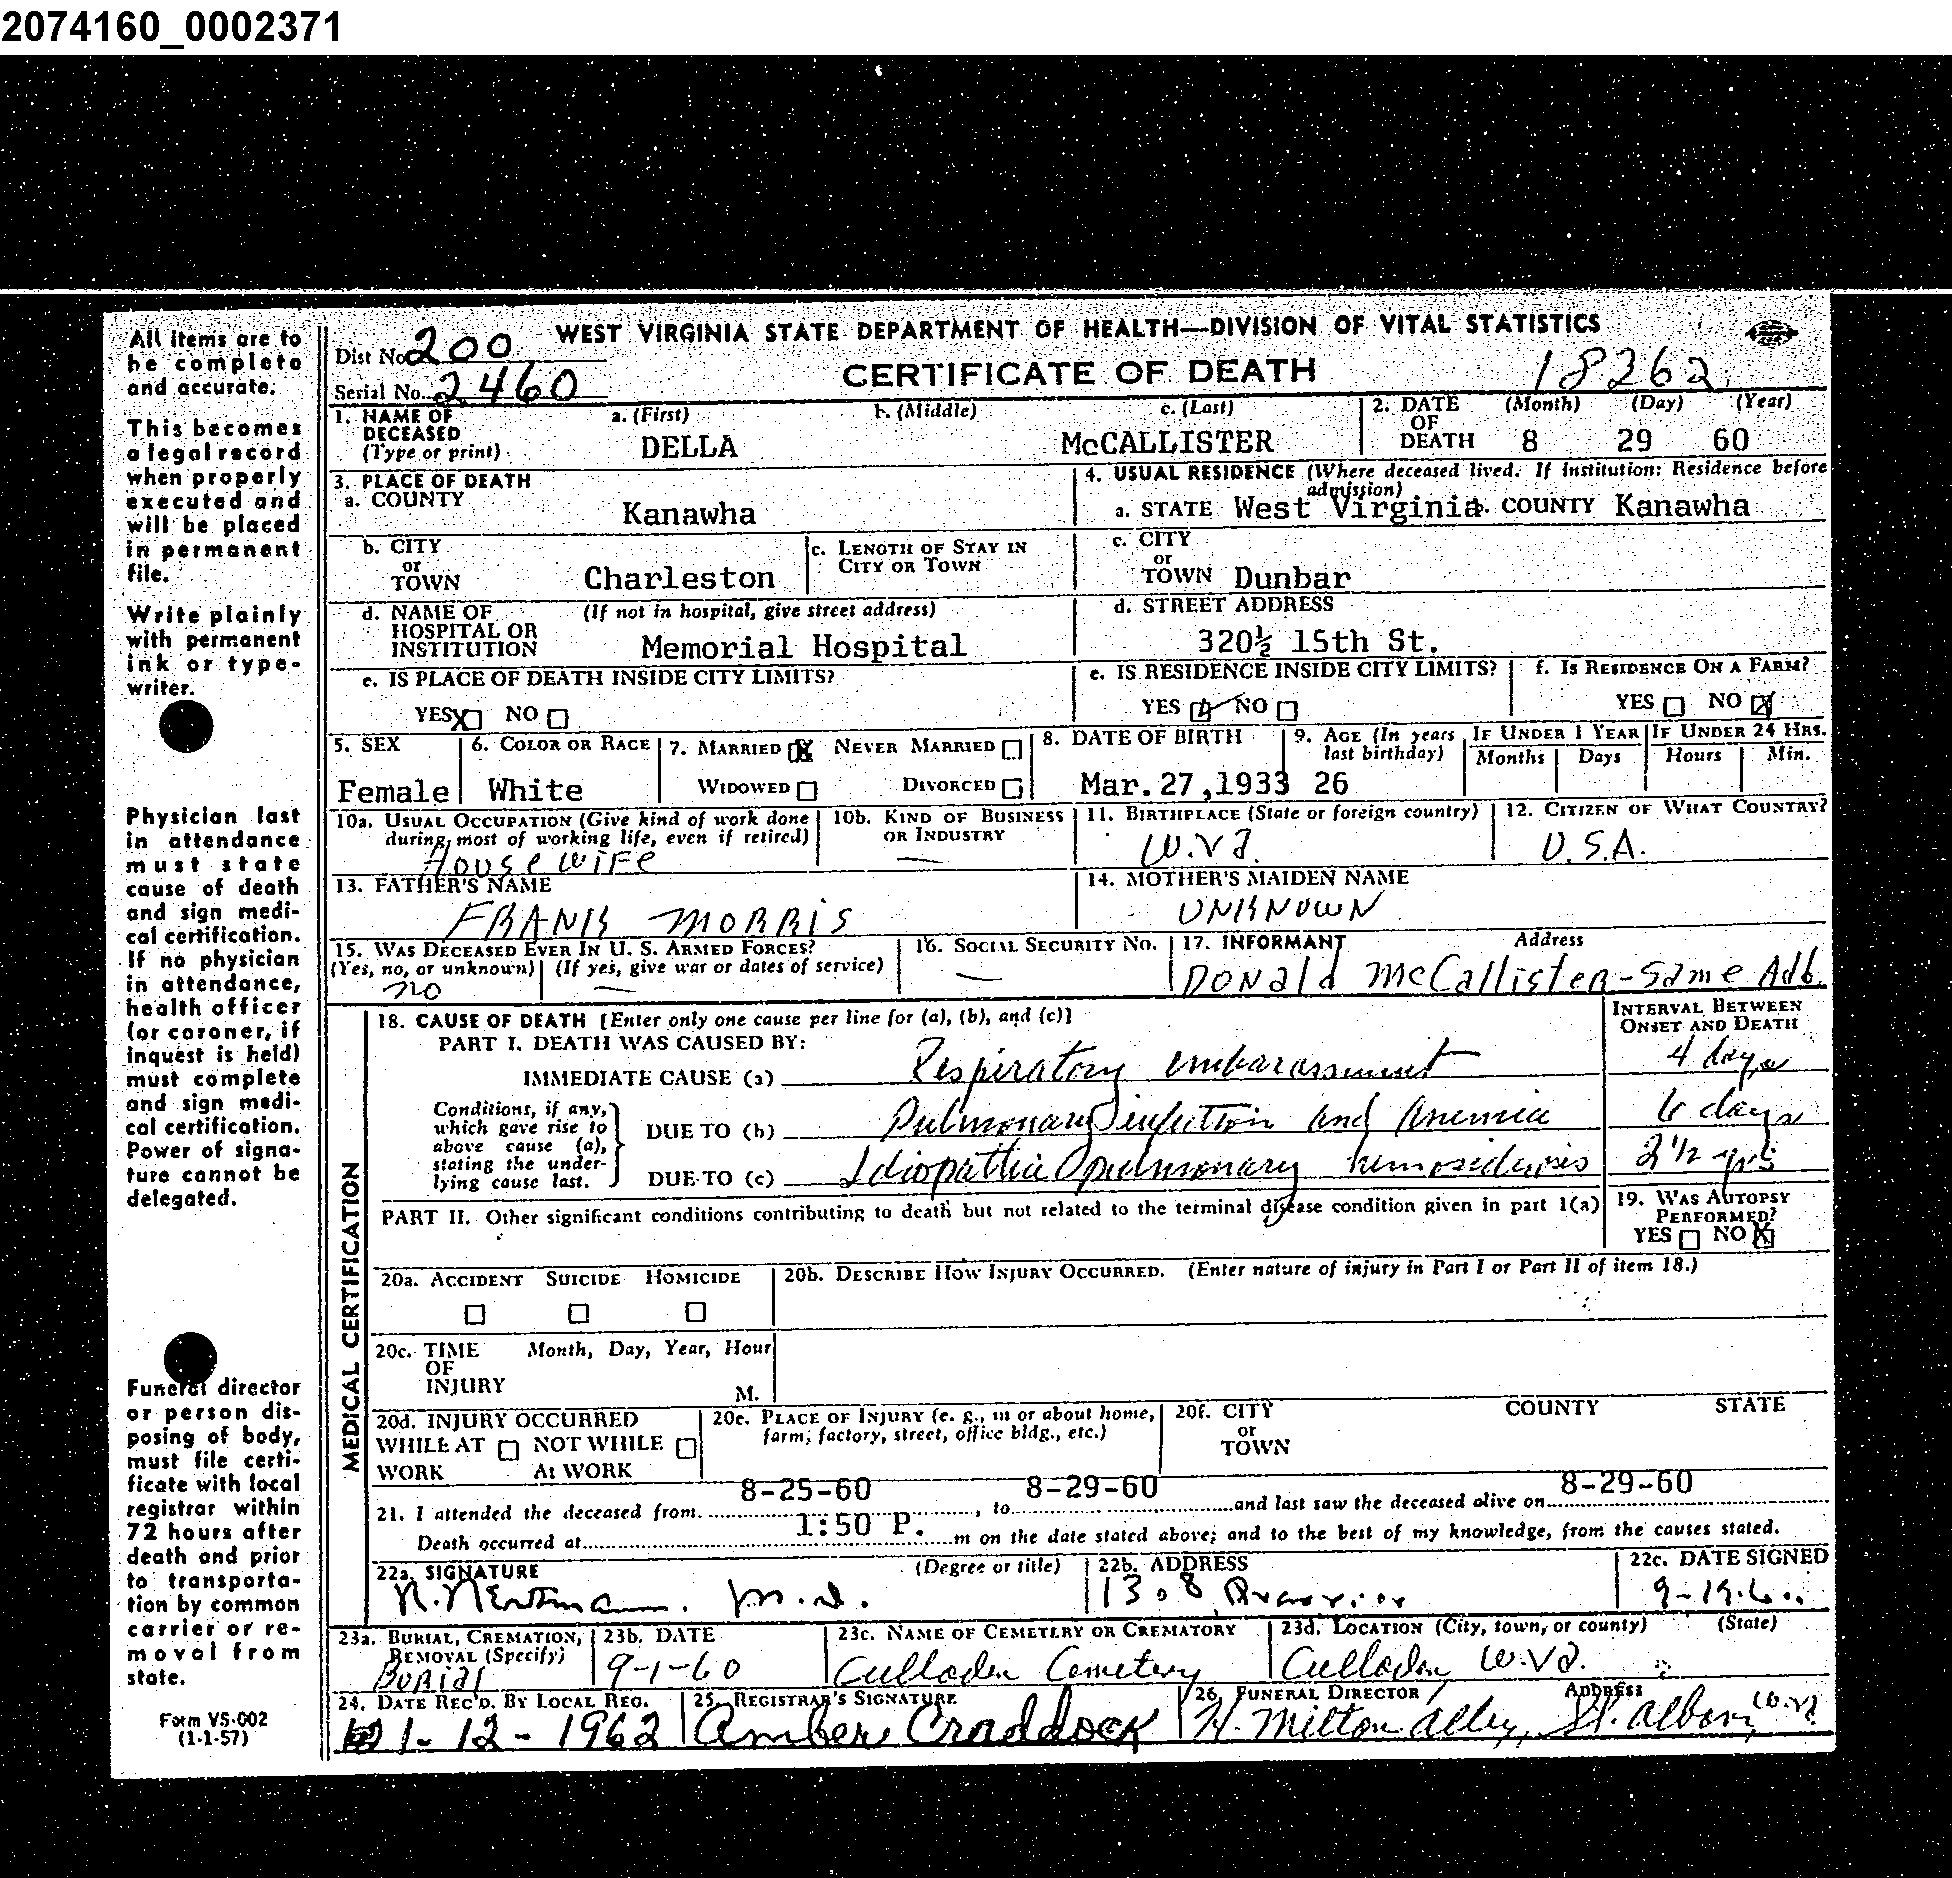 2074160_0002371
All items are to
be complete
and accurate.
This becomes
a legal record
when properly
executed and
will be placed
in permanent
file.
Write plainly
with permanent
ink or type-
writer.
Physician last
in attendance
must state
cause of death
and sign medi-
cal certification.
If no physician
in attendance,
health officer
(or coroner, if
inquest is held)
must complete
and sign medi-
cal certification.
Power of signa-
ture cannot be
delegated.
Funeral director
or person dis-
posing of body,
must file certi-
ficate with local
registrar within
72 hours after
death and prior
to transporta-
tion by common
carrier or re-
moval from
state.
Form VS-002
(1-1-57)
WEST VIRGINIA STATE DEPARTMENT OF HEALTH—DIVISION OF VITAL STATISTICS
Dist No. 200
CERTIFICATE OF DEATH 18262
Serial No. 2460
1. NAME OF DECEASED (Type or print) a. (First) b. (Middle) c. (Last)
DELLA McCALLISTER
2. DATE OF DEATH (Month) (Day) (Year)
8 29 60
3. PLACE OF DEATH
a. COUNTY Kanawha
4. USUAL RESIDENCE (Where deceased lived. If institution: Residence before admission)
a. STATE West Virginia b. COUNTY Kanawha
b. CITY or TOWN Charleston
c. LENGTH OF STAY IN CITY OR TOWN
c. CITY or TOWN Dunbar
d. NAME OF HOSPITAL OR INSTITUTION (If not in hospital, give street address)
Memorial Hospital
d. STREET ADDRESS
320½ 15th St.
e. IS PLACE OF DEATH INSIDE CITY LIMITS?
YES X NO
e. IS RESIDENCE INSIDE CITY LIMITS?
YES NO
f. IS RESIDENCE ON A FARM?
YES NO X
5. SEX Female
6. COLOR OR RACE White
7. MARRIED X NEVER MARRIED
WIDOWED DIVORCED
8. DATE OF BIRTH Mar. 27, 1933
9. AGE (In years last birthday) 26
IF UNDER 1 YEAR Months Days
IF UNDER 24 HRS. Hours Min.
10a. USUAL OCCUPATION (Give kind of work done during most of working life, even if retired)
Housewife
10b. KIND OF BUSINESS OR INDUSTRY —
11. BIRTHPLACE (State or foreign country) W.Va.
12. CITIZEN OF WHAT COUNTRY? U.S.A.
13. FATHER'S NAME FRANK MORRIS
14. MOTHER'S MAIDEN NAME UNKNOWN
15. WAS DECEASED EVER IN U. S. ARMED FORCES?
(Yes, no, or unknown) (If yes, give war or dates of service)
no —
16. SOCIAL SECURITY NO. —
17. INFORMANT Address
Donald McCallister - Same Add.
MEDICAL CERTIFICATION
18. CAUSE OF DEATH [Enter only one cause per line for (a), (b), and (c)]
INTERVAL BETWEEN ONSET AND DEATH
PART I. DEATH WAS CAUSED BY:
IMMEDIATE CAUSE (a) Respiratory embarassment 4 days
Conditions, if any, which gave rise to above cause (a), stating the underlying cause last.
DUE TO (b) Pulmonary infection and Anemia 6 days
DUE TO (c) Idiopathic pulmonary hemosiderosis 2 1/2 yrs
PART II. Other significant conditions contributing to death but not related to the terminal disease condition given in part 1(a)
19. WAS AUTOPSY PERFORMED?
YES NO X
20a. ACCIDENT SUICIDE HOMICIDE
20b. DESCRIBE HOW INJURY OCCURRED. (Enter nature of injury in Part I or Part II of item 18.)
20c. TIME OF INJURY Month, Day, Year, Hour M.
20d. INJURY OCCURRED
WHILE AT WORK NOT WHILE At WORK
20e. PLACE OF INJURY (e. g., in or about home, farm, factory, street, office bldg., etc.)
20f. CITY or TOWN COUNTY STATE
21. I attended the deceased from 8-25-60, to 8-29-60 and last saw the deceased alive on 8-29-60
Death occurred at 1:50 P. m on the date stated above; and to the best of my knowledge, from the causes stated.
22a. SIGNATURE (Degree or title)
M.D.
22b. ADDRESS
1308
22c. DATE SIGNED
23a. BURIAL, CREMATION, REMOVAL (Specify)
Burial
23b. DATE
9-1-60
23c. NAME OF CEMETERY OR CREMATORY
Culloden Cemetery
23d. LOCATION (City, town, or county) (State)
Culloden W.Va.
24. DATE REC'D. BY LOCAL REG.
1-12-1962
25. REGISTRAR'S SIGNATURE
Amber Craddock
26. FUNERAL DIRECTOR Address
H. Milton Alley, St. Albans, W.Va